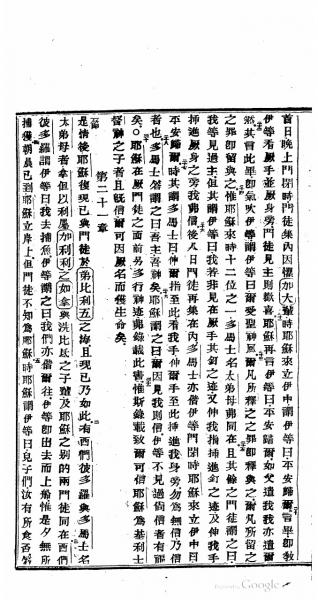 首日晚上門閉時門徒集內因懼如大輩時耶穌來立伊中謂伊等曰平安歸爾言畢卽教
伊等看厥手並厥身旁門徒見主則歡喜耶穌再言伊等曰平安歸爾如父遣我我亦遣爾
然其言此畢卽氣吹伊等謂伊等曰爾受聖神風爾凡所釋之之罪卽釋與之爾凡所留之
之罪卽留與之惟耶穌來時十二位之一多馬士名太弟母弗同在且其餘之門徒謂之曰
我等見過主但其謂伊等曰我若非見在厥手其釘之迹又伸我指揷進釘之迹及伸我手
揷進厥身之旁我弗信後八日門徒再集在內多馬士亦偕伊等門閉時耶穌來立伊中曰
平安歸爾時其謂多馬士曰伸爾指至此看我手伸爾手至此揷進我身旁勿爲無信乃信
者也多馬士答謂之曰吾主吾神矣耶穌謂之曰爾因見我則信伊等不見過尚信者有福
矣耶穌在厥門徒之面前另多行神迹弗錄載此書惟斯錄載致爾可信耶穌爲基利士
督神之子者且旣信爾可因厥名而獲生命矣
第二十一章
是情後耶穌復現已與門徒於弟比利五之海且現已乃如此有西們彼多羅與多馬士名
太弟母者拿但以利屬加利利之如拿與洗比氐之子輩及耶穌之別的兩門徒同在西們
彼多羅謂伊等曰我去捕魚伊等謂之曰我們亦偕爾往伊等卽出去而上船惟是夕無所
捕獲朝晨已到耶穌立岸上但門徒不知爲耶穌時耶穌謂伊等曰兒子們汝有所食否答
Google